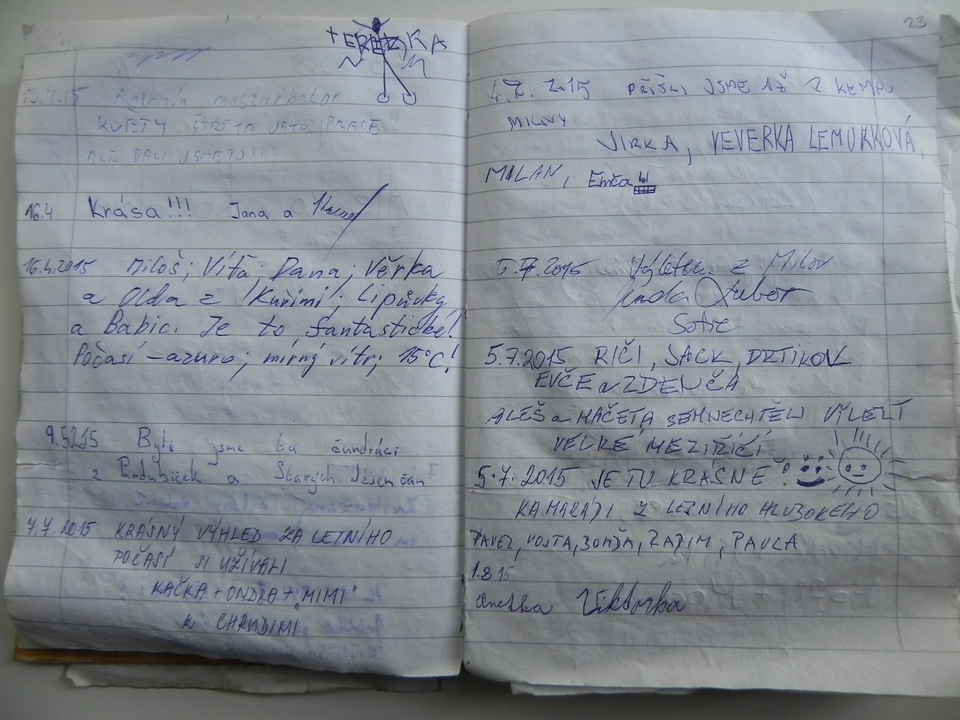 +EREZKA
15.4.15 Antonín masturbátor
KVĚTY
16.4 Krása!!! Jana a
16.4.2015 Miloš; Víťa; Dana; Věrka
a Olda z Kuřimi; Lipůvky
a Babic. Je to fantastické!
Počasí - azuro; mírný vítr; 15°C!
9.5.2015 Byli jsme tu čundráci
z Pardubiček a Starých Jesenčan
7.7.2015 KRÁSNÝ VÝHLED ZA LETNÍHO
POČASÍ SI UŽÍVALI
KAČKA + ONDRA + "MIMI"
z CHRUDIMI
23
2015 PŘIŠLI JSME AŽ Z KEMPU
MILOVY
JIRKA, VEVERKA LEMURKOVÁ,
MILAN, Emča
5.7.2015 Výlet z Milov
Jenda
5.7.2015 RIČI, JACK, DRTIKOL
EVČE a ZDENČA
ALEŠ a MAČETA SEM NECHTĚLI VYLÉZT
VELKÉ MEZIŘÍČÍ
5.7.2015 JE TU KRÁSNĚ
KAMARÁDI Z LETNÍHO HLUBOKÉHO
PAVEL, VOJTA, HONZA, RADIM, PAVLA
1.8.15
Anežka Viktorka